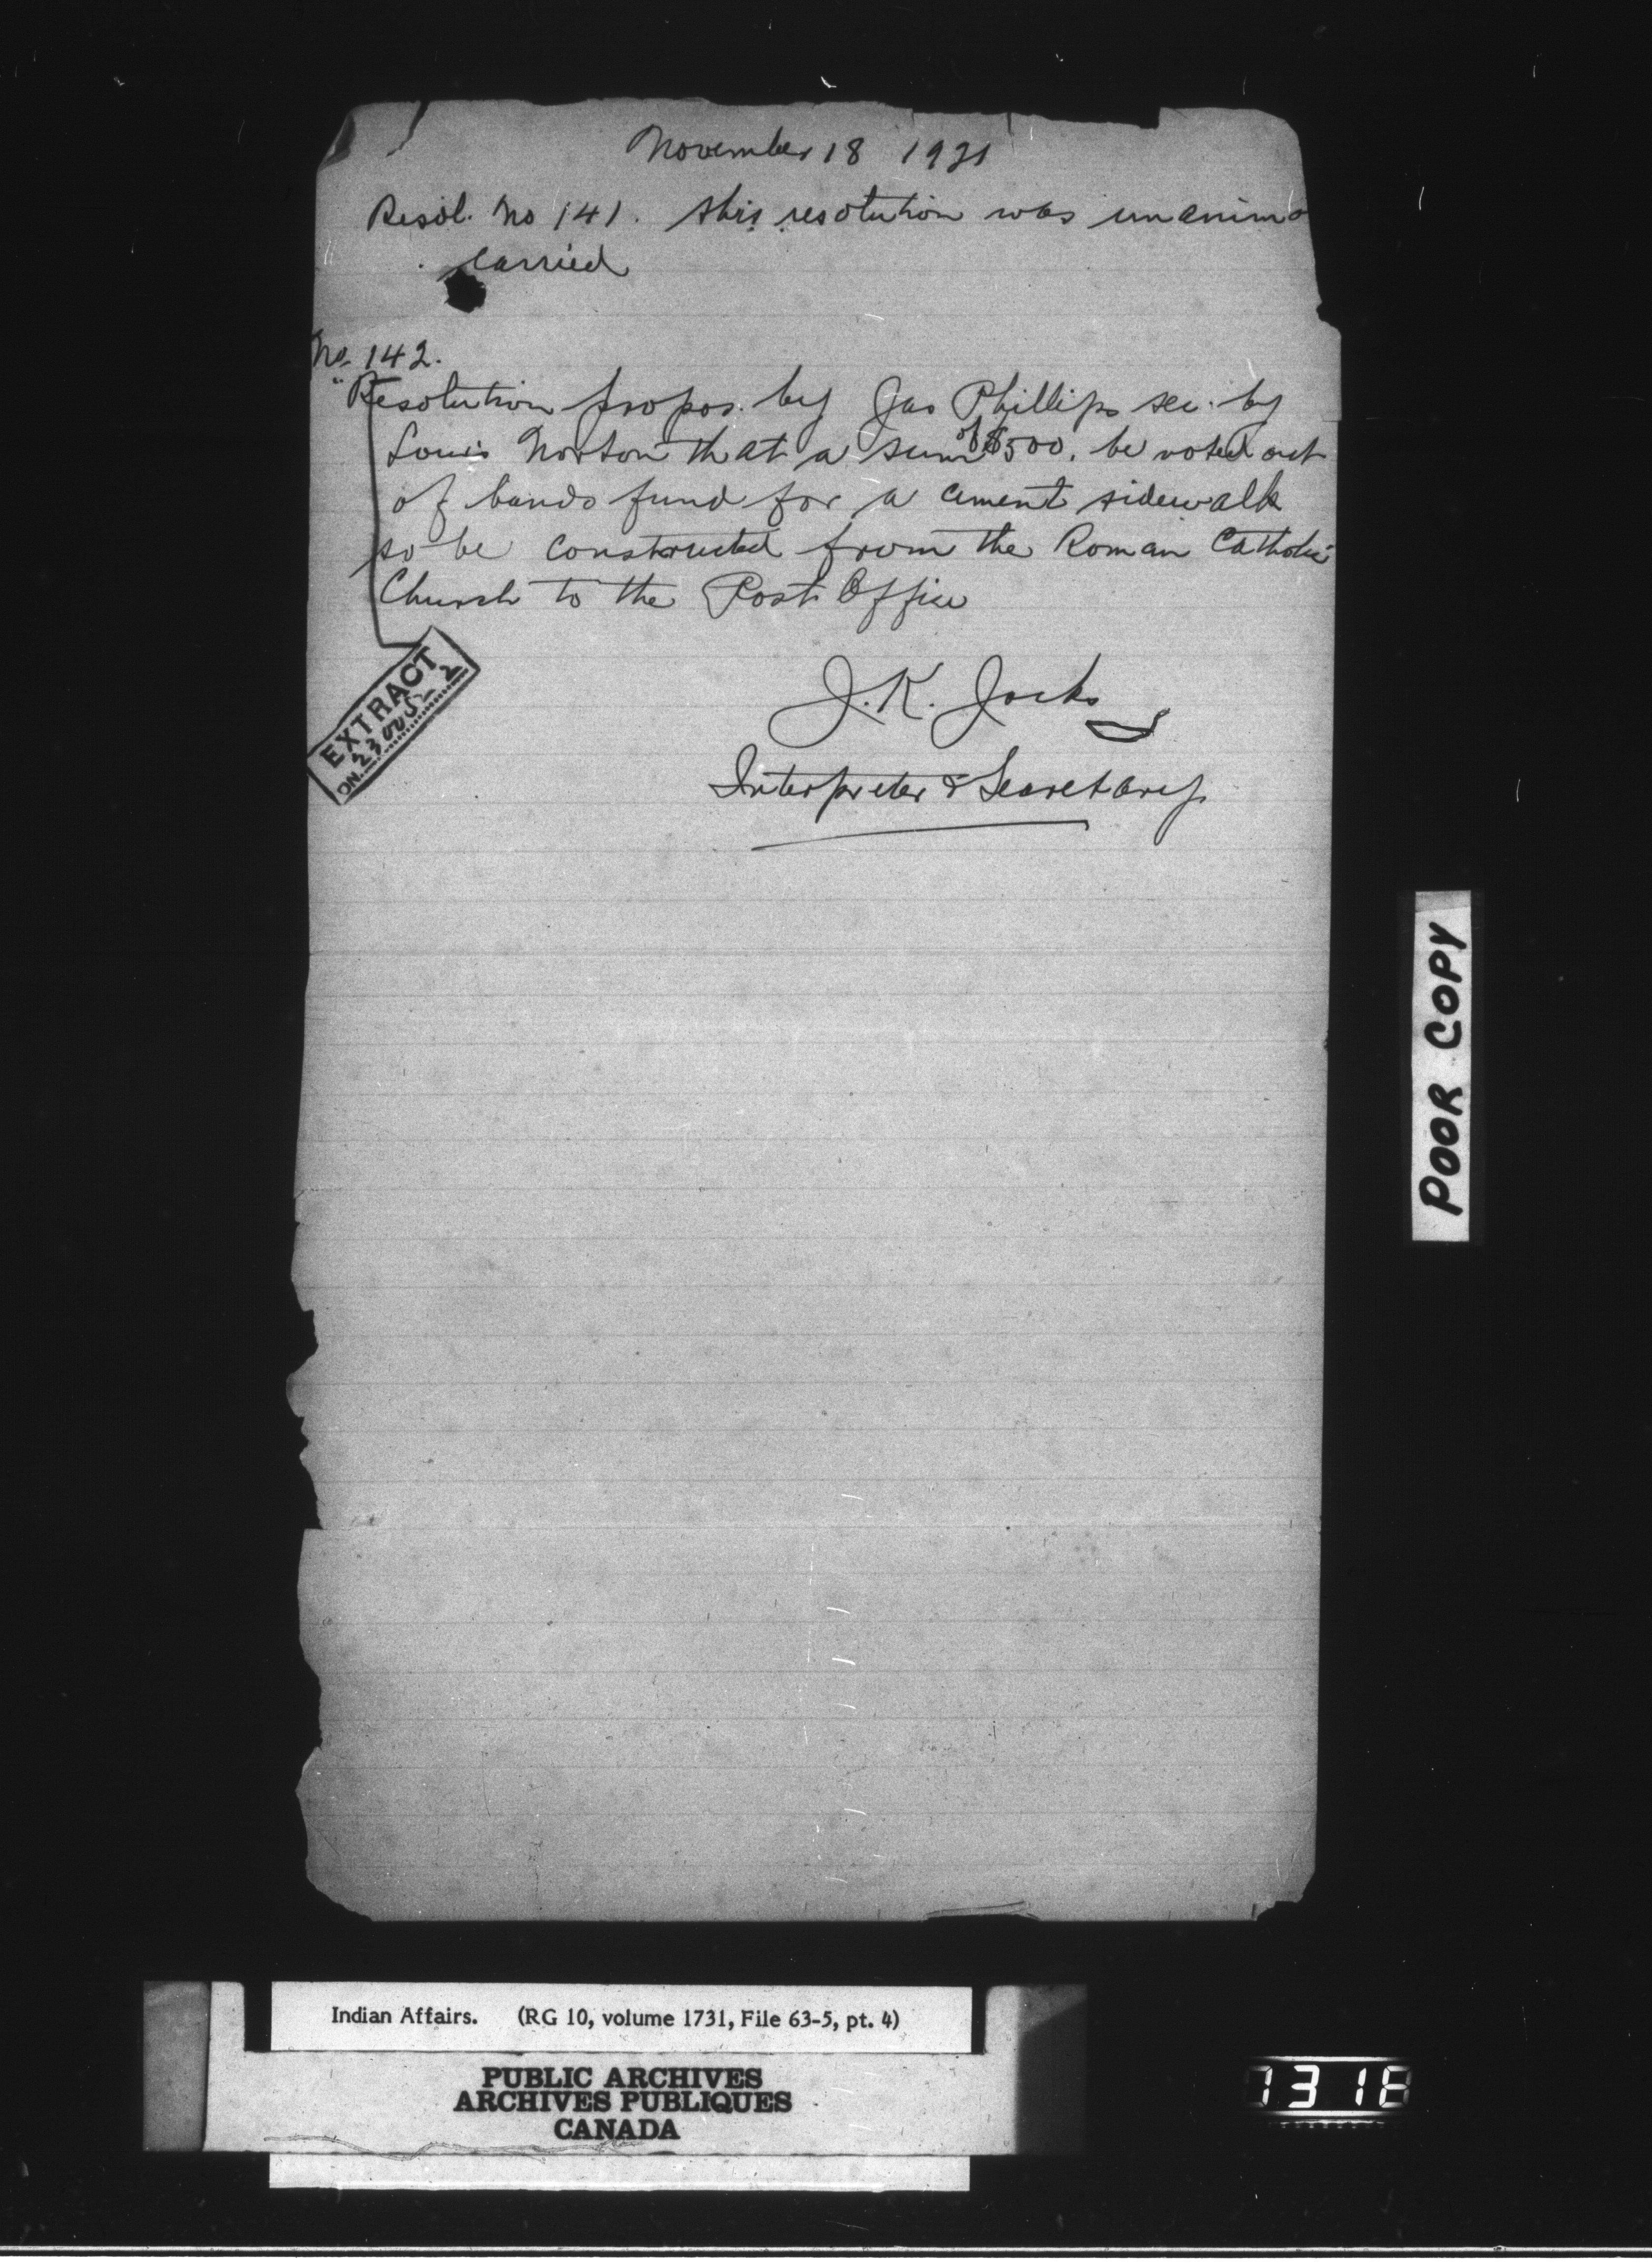 November 18 1921
Resol. No 141. this resolution was unanimo
carried
No. 142.
"Resolution propos. by Jas Phillips sec. by
Louis Norton that a sum of $500. be voted out
of bands fund for a cement sidewalk
to be constructed from the Roman Catholic
Church to the Post Office
EXTRACT
ON 23005-2
J. K. Jocks
Interpreter & Secretary
POOR COPY
Indian Affairs. (RG 10, volume 1731, File 63-5, pt. 4)
PUBLIC ARCHIVES
ARCHIVES PUBLIQUES
CANADA